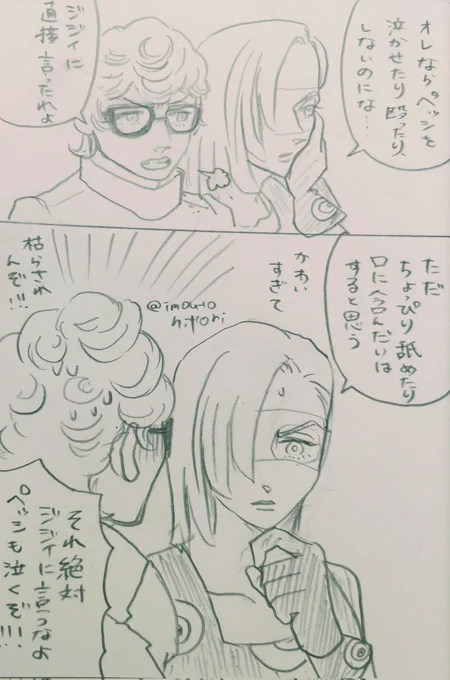 オレなら ペッシを
泣かせたり 殴ったり
しないのにな…
ジジィに
直接 言ったれよ
ただ
ちょっぴり 舐めたり
口に含んだいは
すると思う
かわい
すぎて
@imouto
hitori
枯らされ
んぞ!!!
それ絶対
ジジィに言うなよ
ペッシも泣くぞ!!!